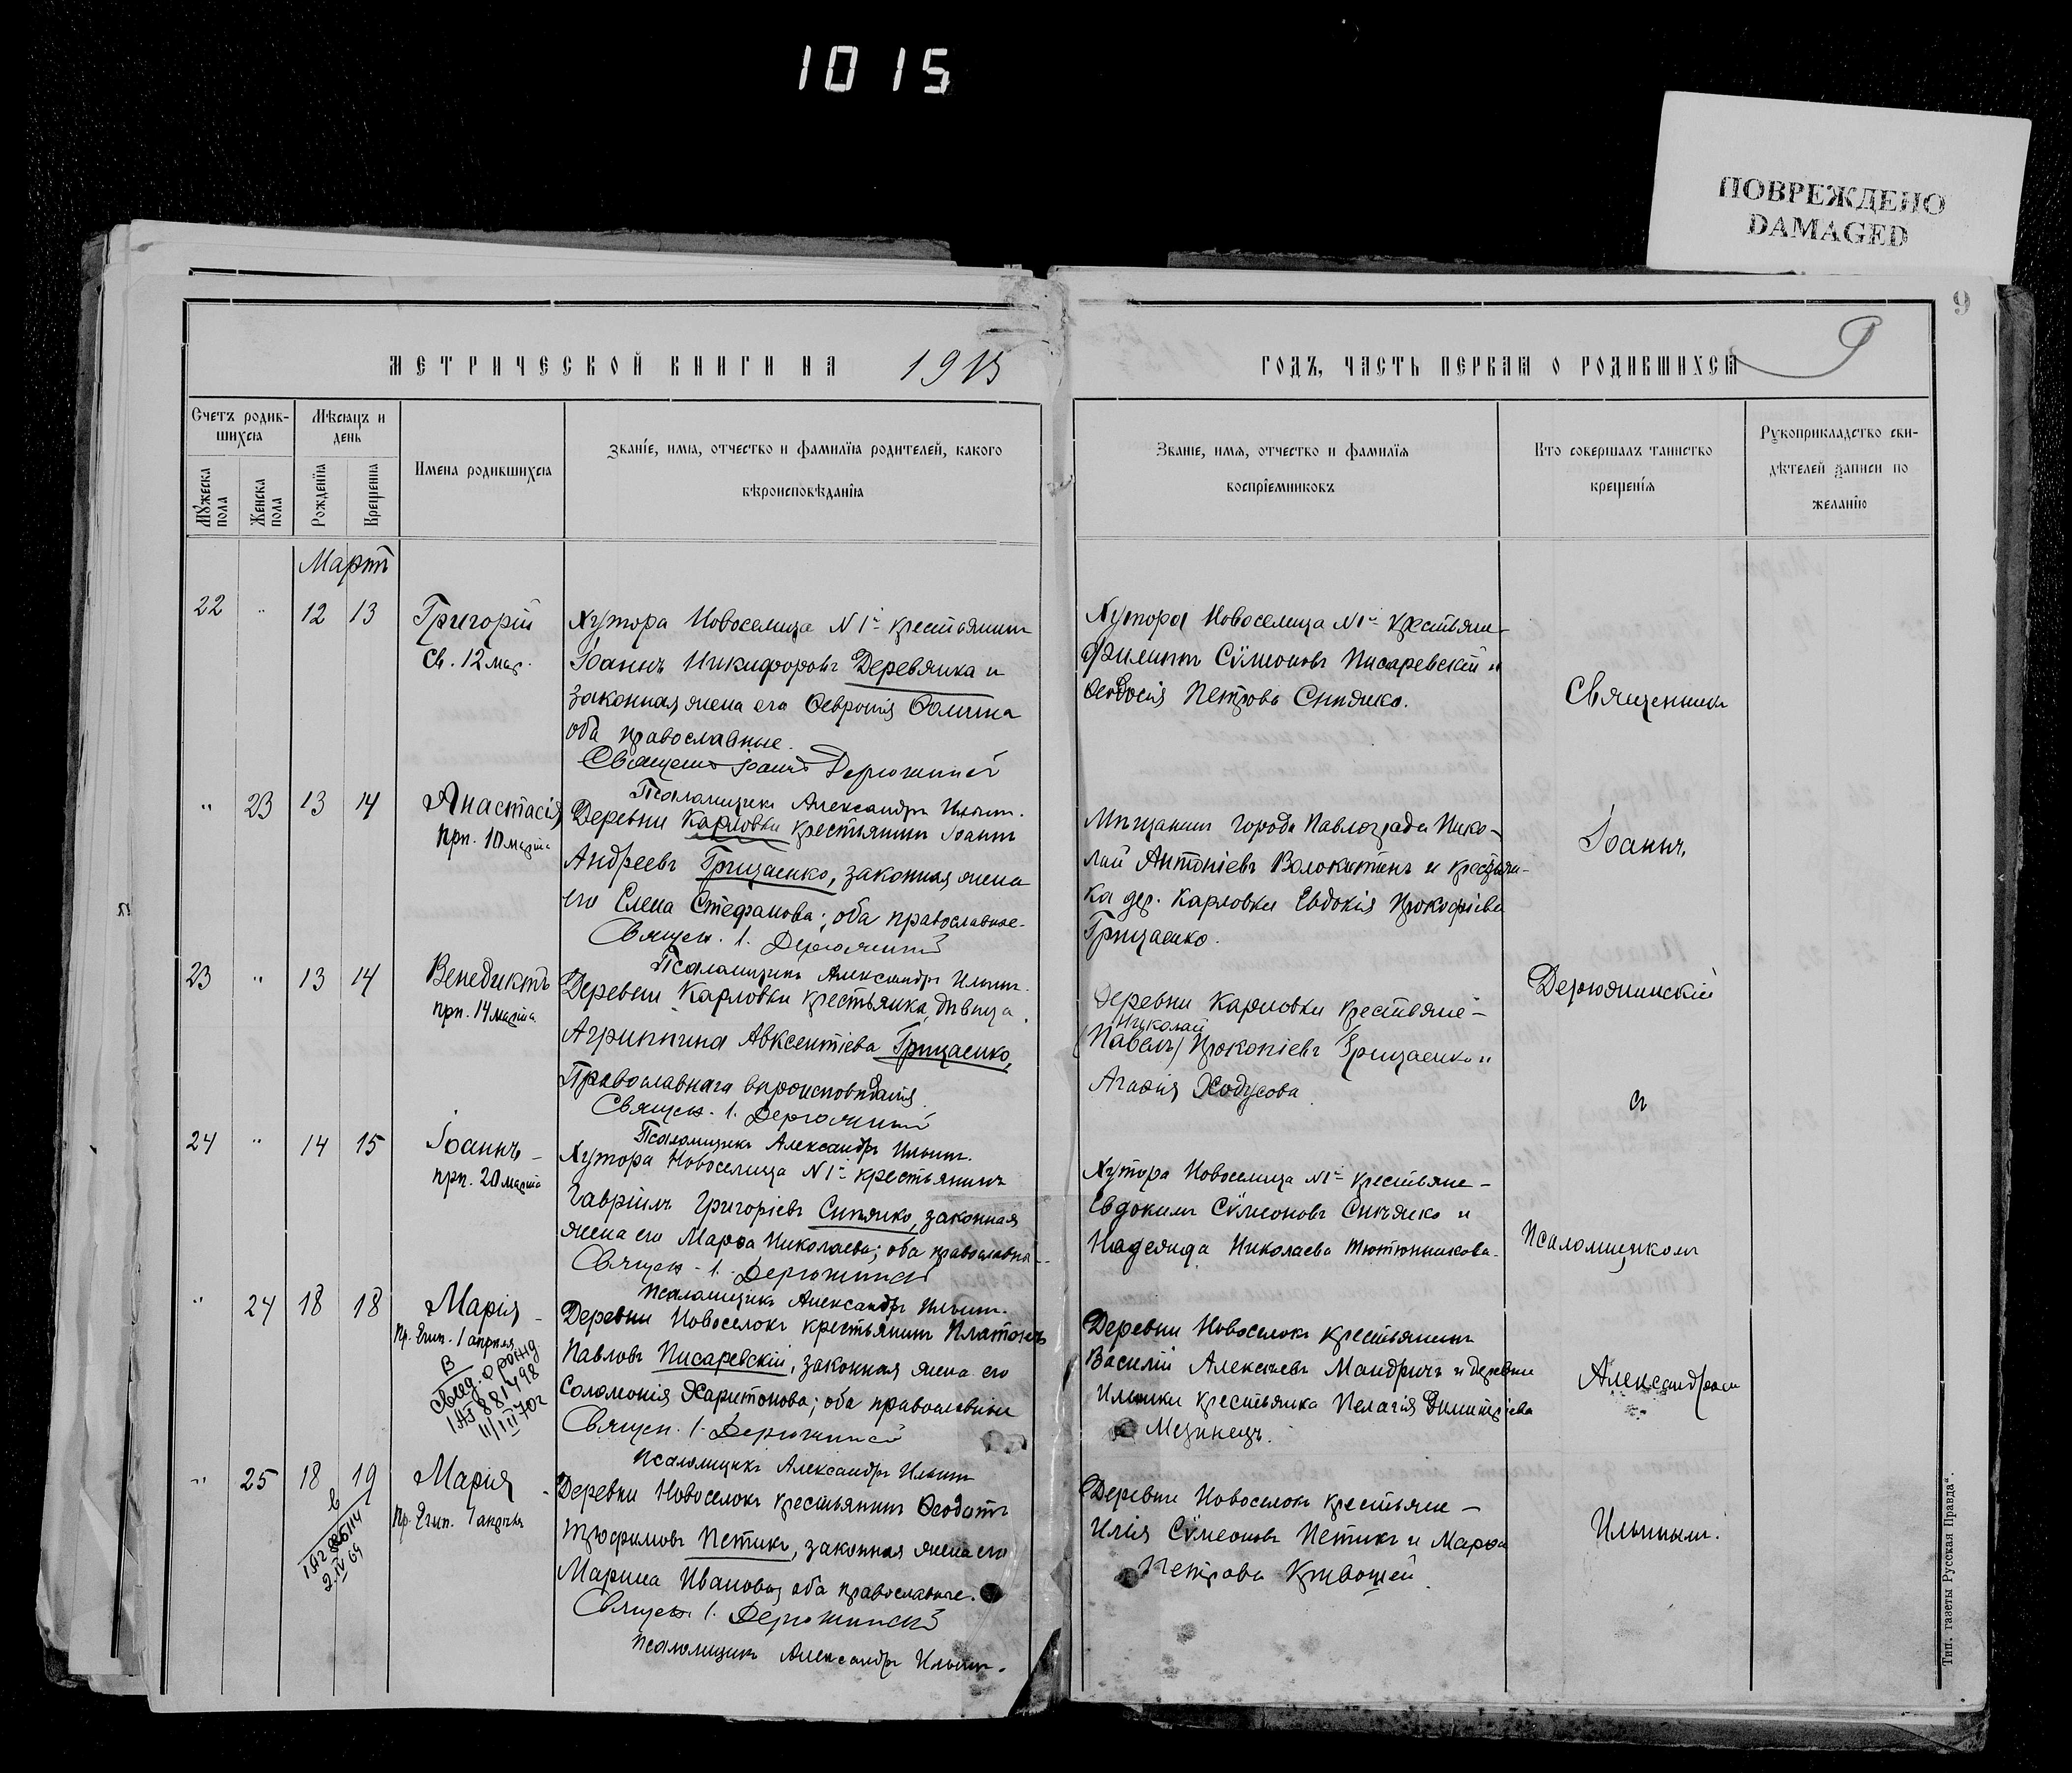 1015
ПОВРЕЖДЕНО
DAMAGED
9
МЕТРИЧЕСКОЙ КНИГИ НА 1915
ГОДЪ, ЧАСТЬ ПЕРВАЯ О РОДИВШИХСЯ
Счетъ родив-
шихся
Мужеска
пола
Женска
пола
Мѣсяцъ и
день
Рожденія
Крещенія
Имена родившихся
Званіе, имя, отчество и фамилія родителей, какого
вѣроисповѣданія
Званіе, имя, отчество и фамилія
воспріемниковъ
Кто совершалъ таинство
крещенія
Рукоприкладство сви-
дѣтелей записи по
желанію
Мартъ
22 " 12 13 Григорій
Св. 12 мар.
Хутора Новоселица N 1й крестьянинъ
Іоаннъ Никифоровъ Деревянка и
законная жена его Ѳевронія
оба православные.
Священ Іоаннъ Дерюжинскій
Псаломщикъ Александръ Ильинъ.
Хутора Новоселица N 1й крестьяне
Филиппъ Сѵмеоновъ Писаревскій и
Ѳеодосія Петрова Снѣжко.
" 23 13 14 Анастасія
прп. 10 марта
Деревни Карловки крестьянинъ Іоаннъ
Андреевъ Грицаенко, законная жена
его Елена Стефанова; оба православные
Священ. І. Дерюжинскій
Псаломщикъ Александръ Ильинъ.
Мѣщанинъ города Павлограда Нико-
лай Антоніевъ Волокитинъ и крестьян-
ка дер. Карловки Евдокія Прокофіева
Грицаенко.
23 " 13 14 Венедиктъ
прп. 14 марта
Деревни Карловки крестьянка, дѣвица
Агриппина Авксентіева Грицаенко,
Православнаго вѣроисповѣданія.
Священ. І. Дерюжинскій
Псаломщикъ Александръ Ильинъ.
Деревни Карловки крестьяне –
Николай
(Павелъ) Прокопіевъ Грицаенко и
Агафія Ходусова
24 " 14 15 Іоаннъ –
прп. 20 марта
Хутора Новоселица N 1й крестьянинъ
Гавріилъ Григоріевъ Снѣжко, законная
жена его Марфа Николаева; оба православные
Священ. І. Дерюжинскій
Псаломщикъ Александръ Ильинъ.
Хутора Новоселица N 1й крестьяне –
Евдокимъ Сѵмеоновъ Снѣжко и
Надежда Николаева Тютюнникова.
" 24 18 18 Марія –
Пр. Егип. 1 апрѣля
В
свид. о рожд
881498
Деревни Новоселокъ крестьянинъ Платонъ
Павловъ Писаревскій, законная жена его
Соломонія Харитонова; оба православные
Священ. І. Дерюжинскій
Псаломщикъ Александръ Ильинъ
Деревни Новоселокъ крестьянинъ
Василій Алексѣевъ Мандричъ и деревни
крестьянка Пелагія Димитріева
Мезинецъ.
" 25 18 19 Марія –
Пр. Егип. 1 апрѣля
Деревни Новоселокъ крестьянинъ Ѳеодотъ
Трофимовъ Петикъ, законная жена его
Марина Иванова, оба православные.
Священ І. Дерюжинскій
Псаломщикъ Александръ Ильинъ.
Деревни Новоселокъ крестьяне –
Илія Сѵмеоновъ Петикъ и Марфа
Петрова Кривошей
Священникъ
Іоаннъ
Дерюжинскій
съ
Псаломщикомъ
Александромъ
Ильинымъ.
Тип. газеты Русская Правда".